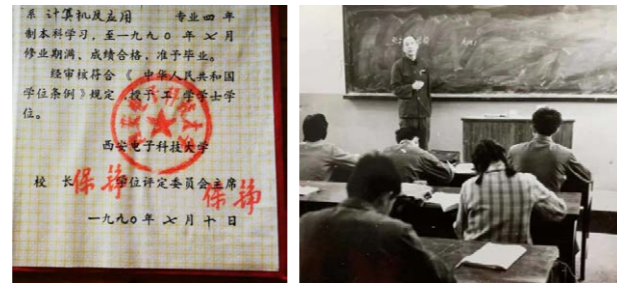 系 计算机及应用 专业四年
制本科学习，至一九九〇年七月
修业期满、成绩合格，准予毕业。
经审核符合《中华人民共和国
学位条例》规定，授予工学学士学
位。
西安电子科技大学
校 长 保铮 学位评定委员会主席 保铮
一九九〇年七月十日